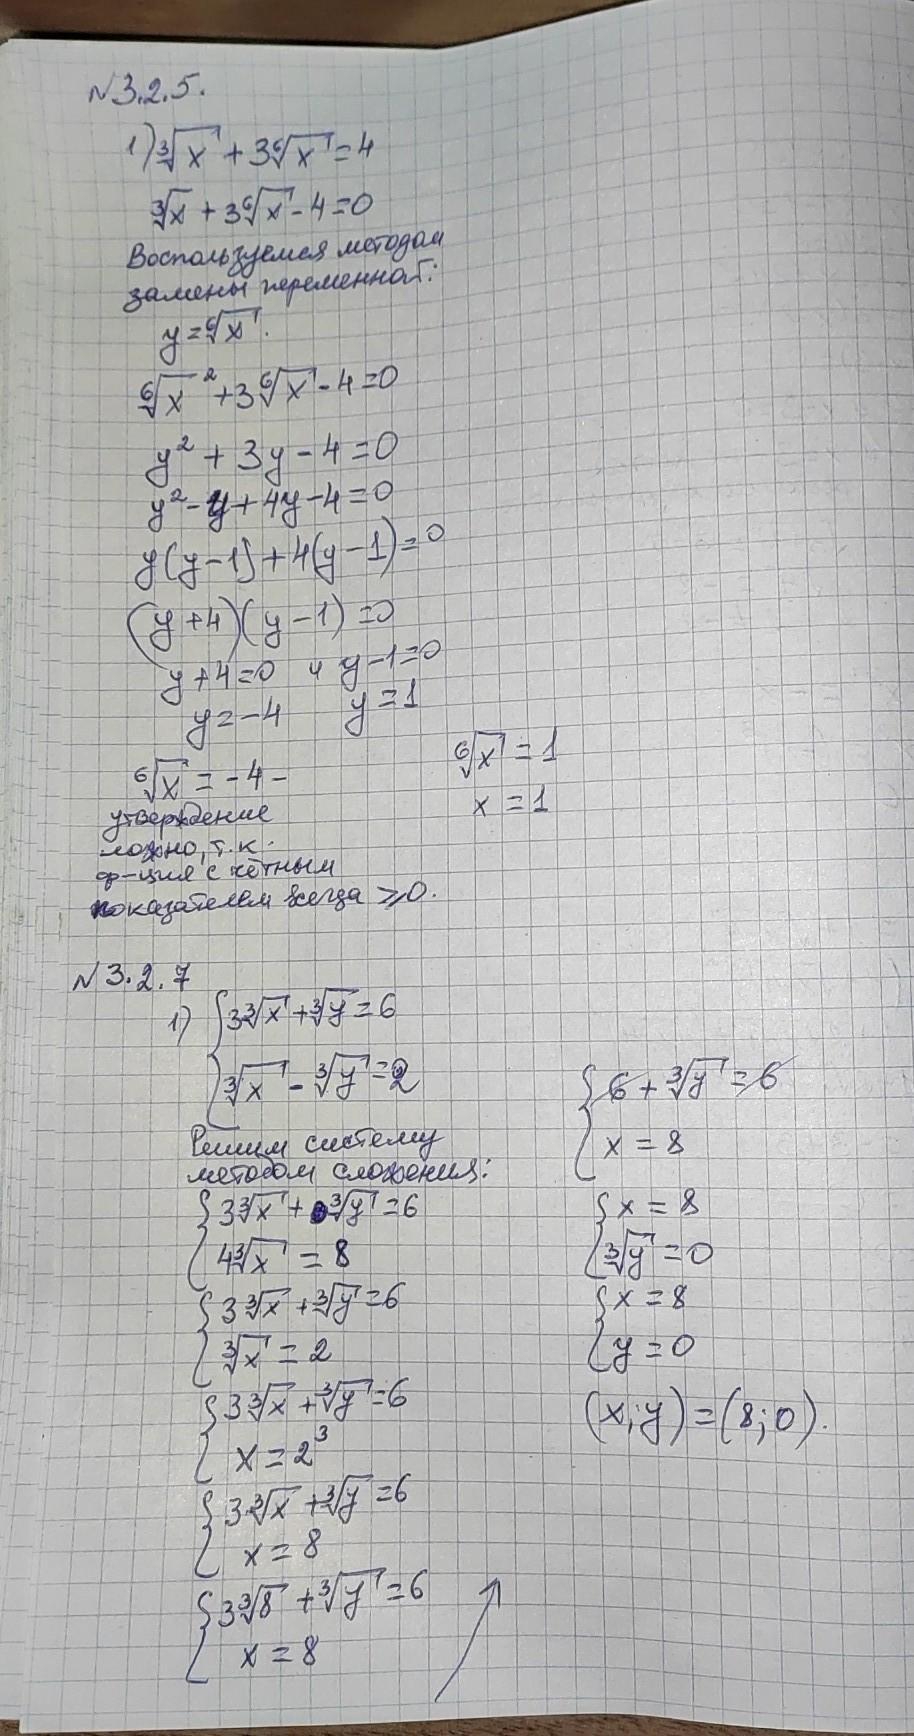 N3.2.5.
1) ∛x + 3⁶√x = 4
∛x + 3⁶√x - 4 = 0
Воспользуемся методом
замены переменной:
y = ⁶√x.
⁶√x² + 3⁶√x - 4 = 0
y² + 3y - 4 = 0
y² - y + 4y - 4 = 0
y(y - 1) + 4(y - 1) = 0
(y + 4)(y - 1) = 0
y + 4 = 0 и y - 1 = 0
y = -4 y = 1
⁶√x = -4 -
утверждение
ложно, т.к.
ф-ция с чётным
показателем всегда ⩾0.
⁶√x = 1
x = 1
N3.2.7
1) { 3∛x + ∛y = 6
∛x - ∛y = 2
Решим систему
методом сложения:
{ 3∛x + ∛y = 6
4∛x = 8
{ 3∛x + ∛y = 6
∛x = 2
{ 3∛x + ∛y = 6
x = 2³
{ 3∛x + ∛y = 6
x = 8
{ 3∛8 + ∛y = 6
x = 8
{ 6 + ∛y = 6
x = 8
{ x = 8
∛y = 0
{ x = 8
y = 0
(x; y) = (8; 0).